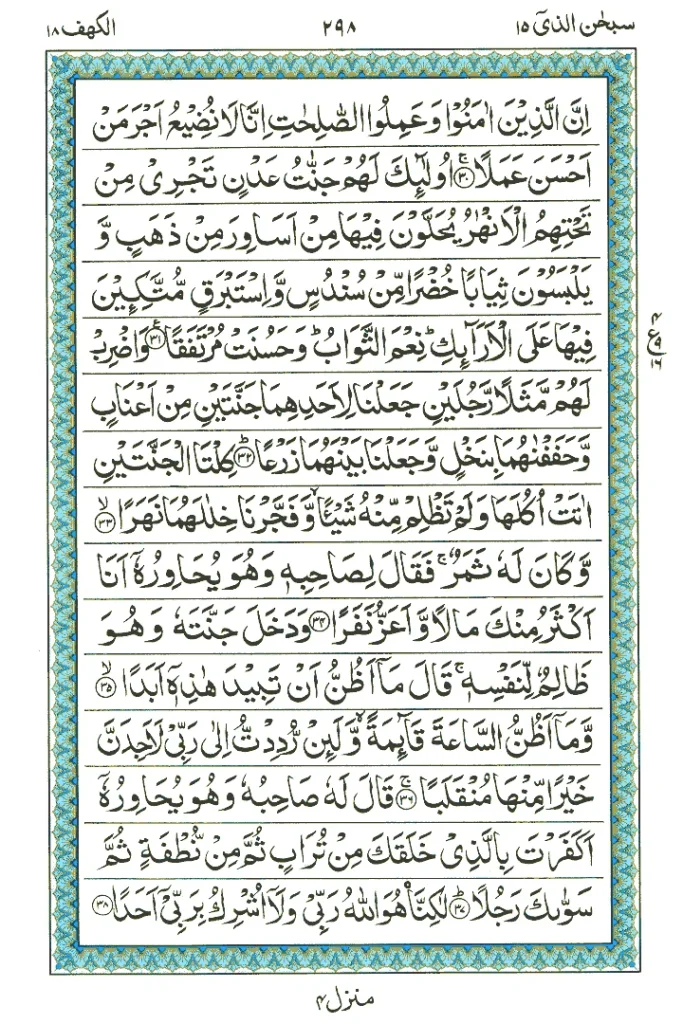 سبحٰن الذیٓ ١٥
٢٩٨
الكهف ١٨
اِنَّ الَّذِيْنَ اٰمَنُوْا وَعَمِلُوا الصّٰلِحٰتِ اِنَّا لَا نُضِيْعُ اَجْرَ مَنْ
اَحْسَنَ عَمَلًا ۚ‏﴿۳۰﴾ اُولٰٓئِكَ لَهُمْ جَنّٰتُ عَدْنٍ تَجْرِىْ مِنْ
تَحْتِهِمُ الْاَنْهٰرُ يُحَلَّوْنَ فِيْهَا مِنْ اَسَاوِرَ مِنْ ذَهَبٍ وَّ
يَلْبَسُوْنَ ثِيَابًا خُضْرًا مِّنْ سُنْدُسٍ وَّاِسْتَبْرَقٍ مُّتَّكِـِٕيْنَ
فِيْهَا عَلَى الْاَرَآئِكِ ؕ نِعْمَ الثَّوَابُ ؕ وَحَسُنَتْ مُرْتَفَقًا ﴿۳۱﴾ وَاضْرِبْ
٤
ع
٩
١٦
لَهُمْ مَّثَلًا رَّجُلَيْنِ جَعَلْنَا لِاَحَدِهِمَا جَنَّتَيْنِ مِنْ اَعْنَابٍ
وَّحَفَفْنٰهُمَا بِنَخْلٍ وَّجَعَلْنَا بَيْنَهُمَا زَرْعًا ؕ﴿۳۲﴾ كِلْتَا الْجَنَّتَيْنِ
اٰتَتْ اُكُلَهَا وَلَمْ تَظْلِمْ مِّنْهُ شَيْـًٔا ۙ وَّفَجَّرْنَا خِلٰلَهُمَا نَهَرًا ۙ﴿۳۳﴾
وَّكَانَ لَهٗ ثَمَرٌ ۚ فَقَالَ لِصَاحِبِهٖ وَهُوَ يُحَاوِرُهٗۤ اَنَا
اَكْثَرُ مِنْكَ مَالًا وَّاَعَزُّ نَفَرًا ﴿۳۴﴾ وَدَخَلَ جَنَّتَهٗ وَهُوَ
ظَالِمٌ لِّنَفْسِهٖ ۚ قَالَ مَاۤ اَظُنُّ اَنْ تَبِيْدَ هٰذِهٖۤ اَبَدًا ۙ﴿۳۵﴾
وَّمَاۤ اَظُنُّ السَّاعَةَ قَآئِمَةً ۙ وَّلَئِنْ رُّدِدْتُّ اِلٰى رَبِّىْ لَاَجِدَنَّ
خَيْرًا مِّنْهَا مُنْقَلَبًا ۚ﴿۳۶﴾ قَالَ لَهٗ صَاحِبُهٗ وَهُوَ يُحَاوِرُهٗۤ
اَكَفَرْتَ بِالَّذِىْ خَلَقَكَ مِنْ تُرَابٍ ثُمَّ مِنْ نُّطْفَةٍ ثُمَّ
سَوّٰىكَ رَجُلًا ؕ﴿۳۷﴾ لٰكِنَّا۟ هُوَ اللّٰهُ رَبِّىْ وَلَاۤ اُشْرِكُ بِرَبِّىْۤ اَحَدًا ﴿۳۸﴾
منزل ٤